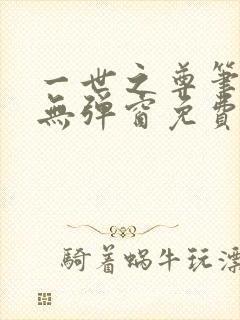 一世之尊筆
無彈窗免費
騎着蝸牛玩漂